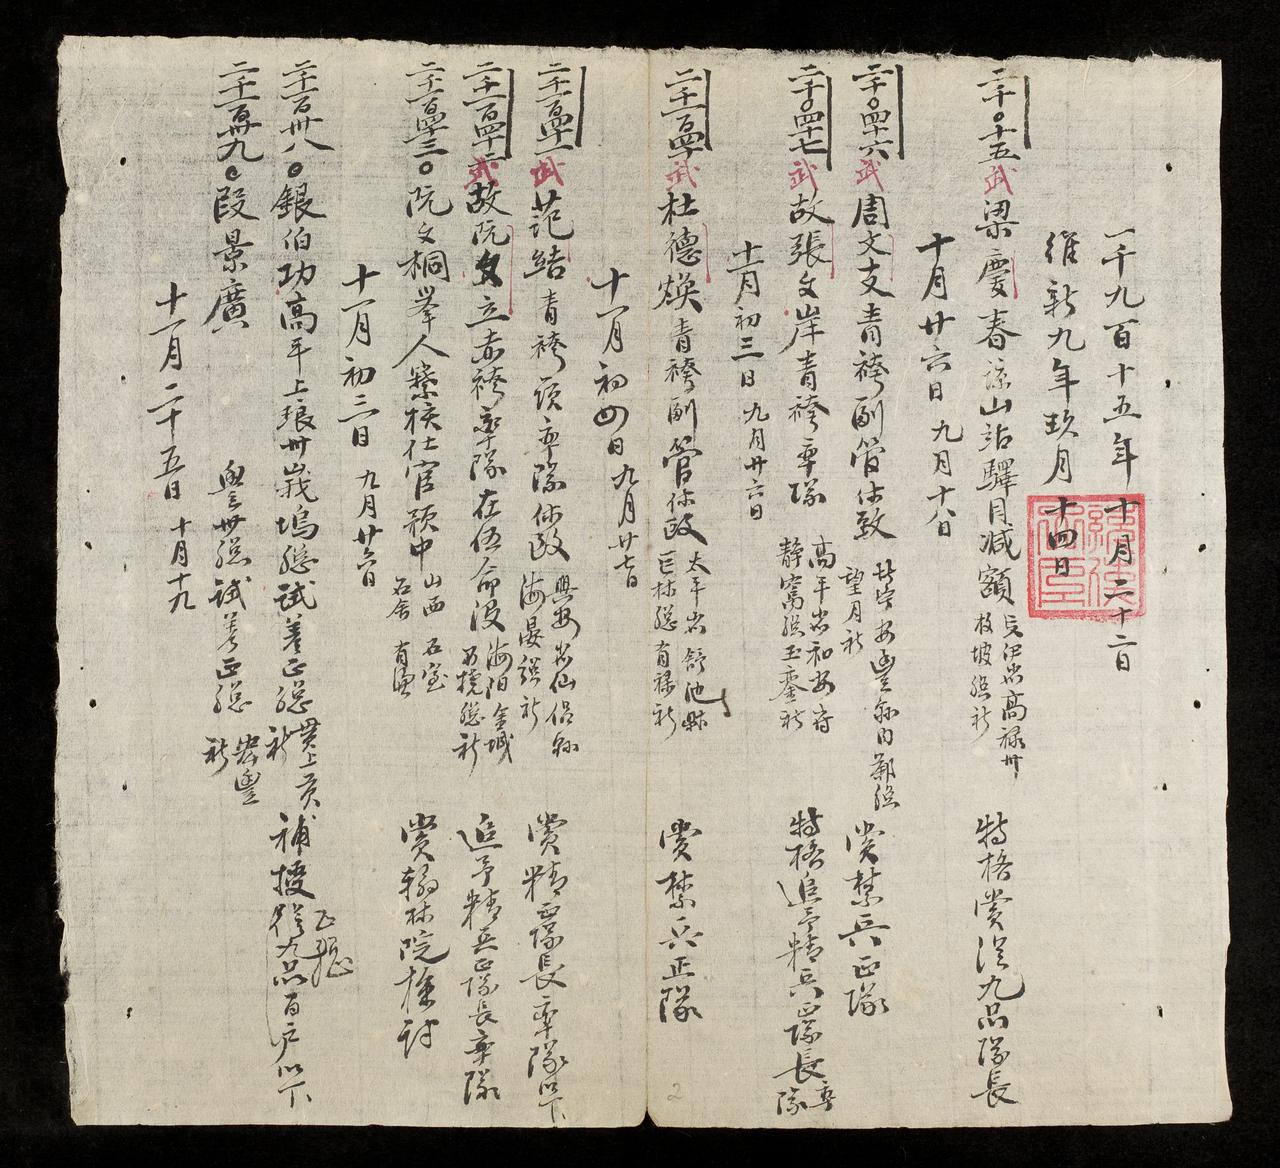 一千九百十五年十月二十二日
維新九年玖月十四日
二千〇十五武梁慶春諒山站驛目减額
高祿卅
枚坡總 社
特格賞從九品隊長
十月廿六日 九月十八日
二千〇四十六武周文支青袴副管休致
安豐 內鄭總
望月社
賞禁兵正隊
二千〇四十七武故張文岸青袴率隊
高平省和安府
靜 總玉 社
特格追予精兵正隊長率隊
十一月初三日 九月廿六日
二千一百四十武杜德煥青袴副管休致
太平省舒池縣
巨林總有祿社
賞禁兵正隊
十一月初四日 九月廿七日
二千一百四十一武范結青袴項率隊休致
興安省仙侶縣
海晏總 社
賞精兵正隊長率隊以下
二千一百四十二武故阮文立赤袴率隊在伍侖沒
海陽金城
總 社
追予精兵正隊長率隊
二千一百四十三〇阮文桐舉人 候仕官預中
山西 石室
石舍 有 
賞翰林院檢討
十一月初三日 九月廿六日
二千一百卅八〇銀伯功高平上琅卅峩塢總試差正總
貫上 
社
補授從九品百戶以下
正總
二千一百卅九〇段景廣 卅總試差正總
 豐
社
十一月二十五日 十月十九
2